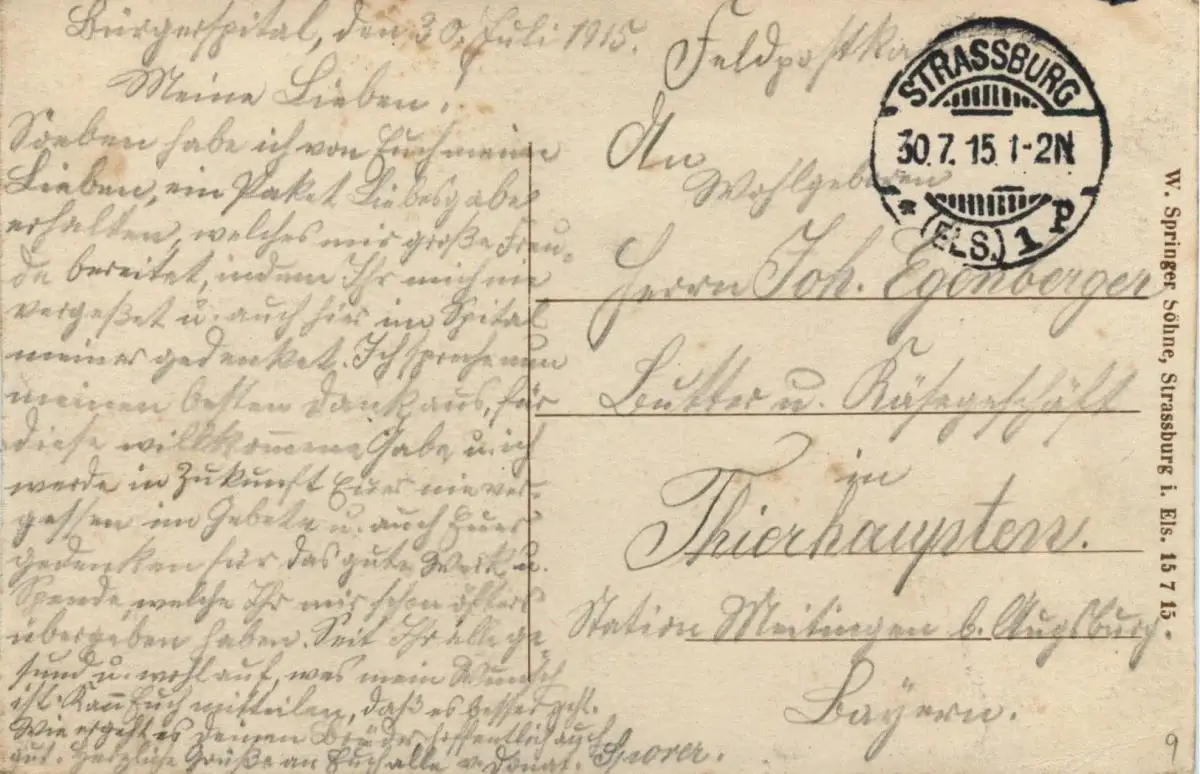 Bürgerspital, den 30. Juli 1915.
Meine Lieben!
Soeben habe ich von Euch meine
Lieben, ein Paket Liebesgabe
erhalten, welches mir große Freu-
de bereitet, indem Ihr mich nie
vergeßet u. auch hier im Spital
meiner gedenket. Ich spreche nun
meinen besten Dank aus, für
diese willkommene Gabe u. ich
werde in Zukunft Euer nie ver-
gessen im Gebete u. auch Euer
gedenken für das gute Werk u.
Spende, welche Ihr mir schon öfters
übergeben haben. Seit Ihr alle ge-
sund u. wohl auf, was mein Wunsch
ist. Kann Euch mitteilen, daß es besser geht.
Wie ergeht es Deinen Brüder hoffentlich auch
gut. Herzliche Grüße an Euch alle v. Donat.
Feldpostka
An
Wohlgeboren
Herrn Joh. Egenberger
Butter u. Käsegeschäft
in
Thierhaupten.
Station Meitingen b. Augsburg.
Bayern.
STRASSBURG
30.7.15. 1-2N
* (ELS.) 1 P
W. Springer Söhne, Strassburg i. Els. 15 7 15.
9